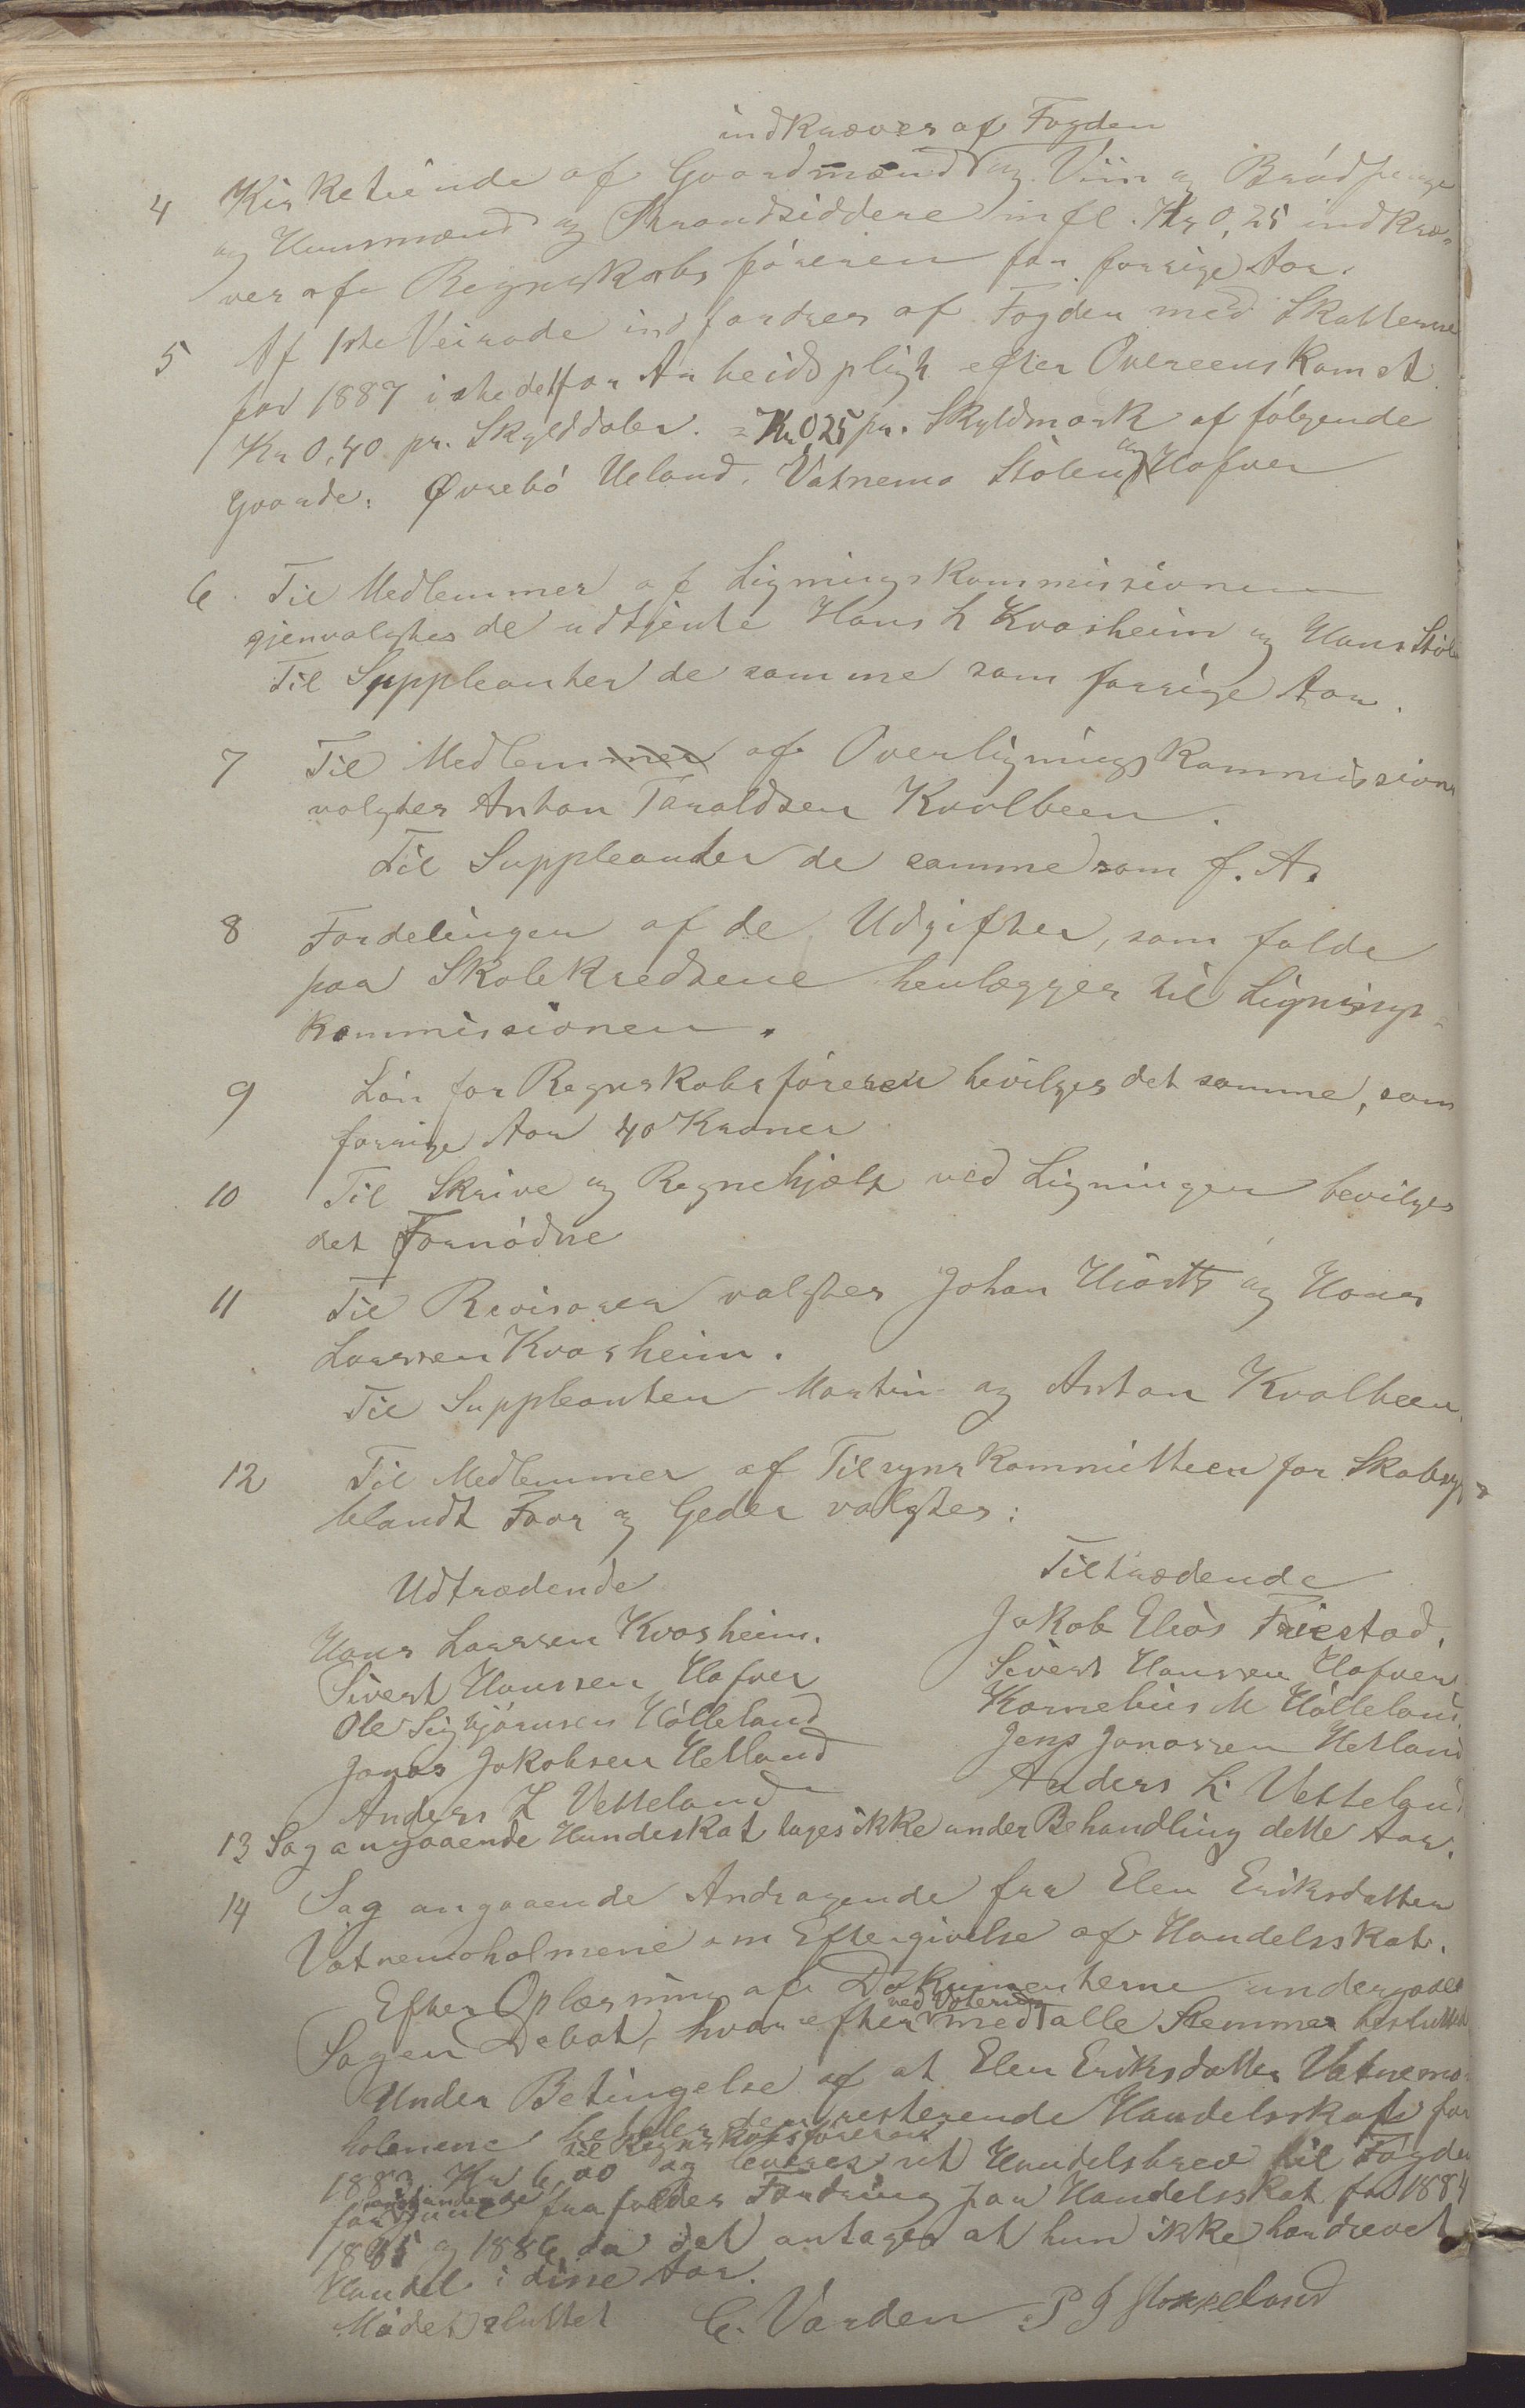 indkræves af Fogden
4 Kirketiende af Gaardmænd og Viin og Brødpenge
og Huusmænd og Strandsiddere infl. Kr 0,25 indkræ-
ver af Regnskabsføreren for forrige Aar.
5 Af 1ste Veirode indfordres af Fogden med Skatterne
for 1887 istedetfor Arbeidspligt efter Overeenskomst
Kr 0,40 pr. Skylddaler. = Kr 0,25 pr. Skyldmark af følgende
Gaarde: Øvrebø Ueland, Vatnemo Stølen og Hafver
6 Til Medlemmer af Ligningskommissionen
gjenvalgtes de udtjente Hans L Kvasheim og Hans Støle
Til Suppleanter de samme som forrige Aar.
7 Til Medlemmer af Overligningskommissionen
valgtes Anton Taraldsen Kvalbeen.
Til Suppleanter de samme som f. A.
8 Fordelingen af de Udgifter, som falde
paa Skolekredsene henlægges til Lignings-
kommissionen.
9 Løn for Regnskabsføreren bevilges det samme, som
forrige Aar 40 Kroner
10 Til Skrive og Regnehjælp ved Ligningen bevilges
det Fornødne
11 Til Revisorer valgtes Johan og Hans
Larssen Kvasheim.
Til Suppleanter Martin og Anton Kvalbeen.
12 Til Medlemmer af Tilsynskommitteen for Skabsyge
blandt Faar og Geder valgtes:
Udtrædende
Tiltrædende
Hans Larssen Kvasheim.
Jakob Elias Friestad.
Sivert Hanssen Hafver
Sivert Hanssen Hafver
Ole Sigbjørnsen Hølleland
Kornelius M Hølleland
Jonas Jakobsen Hetland
Jens Jonassen Hetland
Anders L Vetteland
Anders L Vetteland
13 Sag angaaende Hundeskat tages ikke under Behandling dette Aar.
14 Sag angaaende Andragende fra Elen Eriksdatter
Vatnemoholmene om Eftergivelse af Handelsskat.
Efter Oplæsning af Dokumenterne undergades
ved Votering
Sagen Debat, hvorefter med alle Stemmer besluttet
Under Betingelse af at Elen Eriksdatter Vatnemo-
holmene betaler den resterende Handelsskat for
til Regnskabsføreren
1883 Kr 6,00 og leverer sit Handelsbrev til Fogden
før Juni frafaldes Fordring paa Handelsskat for 1884
1885 og 1886, da det antages at hun ikke har drevet
Handel i disse Aar.
Mødet sluttet C. Varden P J Stokkeland